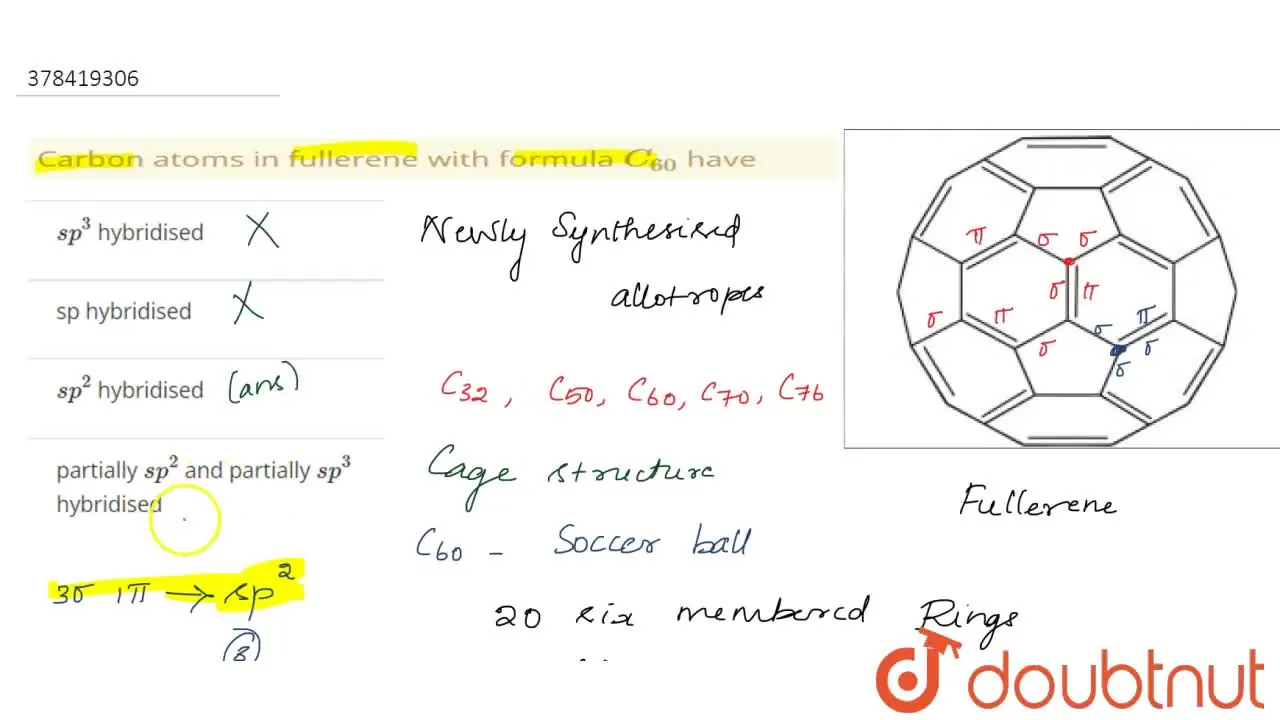 378419306
Carbon atoms in fullerene with formula C₆₀ have
sp³ hybridised X
sp hybridised X
sp² hybridised (ans)
partially sp² and partially sp³
hybridised
3σ 1π → sp²
Newly Synthesised
allotropes
C₃₂, C₅₀, C₆₀, C₇₀, C₇₆
Cage structure
C₆₀ - Soccer ball
20 six membered Rings
π σ σ
σ π
σ π σ π
σ σ σ
Fullerene
doubtnut